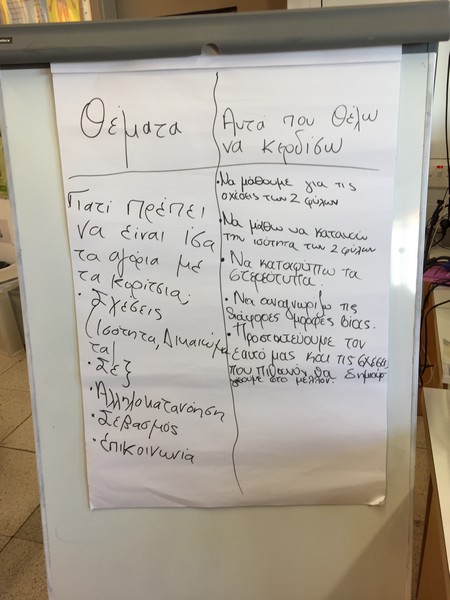 Θέματα
Γιατί πρέπει
να είναι ίσα
τα αγόρια με
τα κορίτσια;
• Σχέσεις
(Ισότητα, Δικαιώμα
τα)
• Σεξ
• Αλληλοκατανόηση
• Σεβασμός
• Επικοινωνία
Αυτά που θέλω
να κερδίσω
• Να μάθουμε για τις
σχέσεις των 2 φύλων
• Να μάθω να κατανοώ
την ισότητα των 2 φύλων
• Να καταρίπτω τα
στερεότυπα.
• Να αναγνωρίζω τις
διάφορες μορφές βίας.
• Προστατεύουμε τον
εαυτό μας και τις σχέσεις
που πιθανόν θα δημιουρ
γήσουμε στο μέλλον.